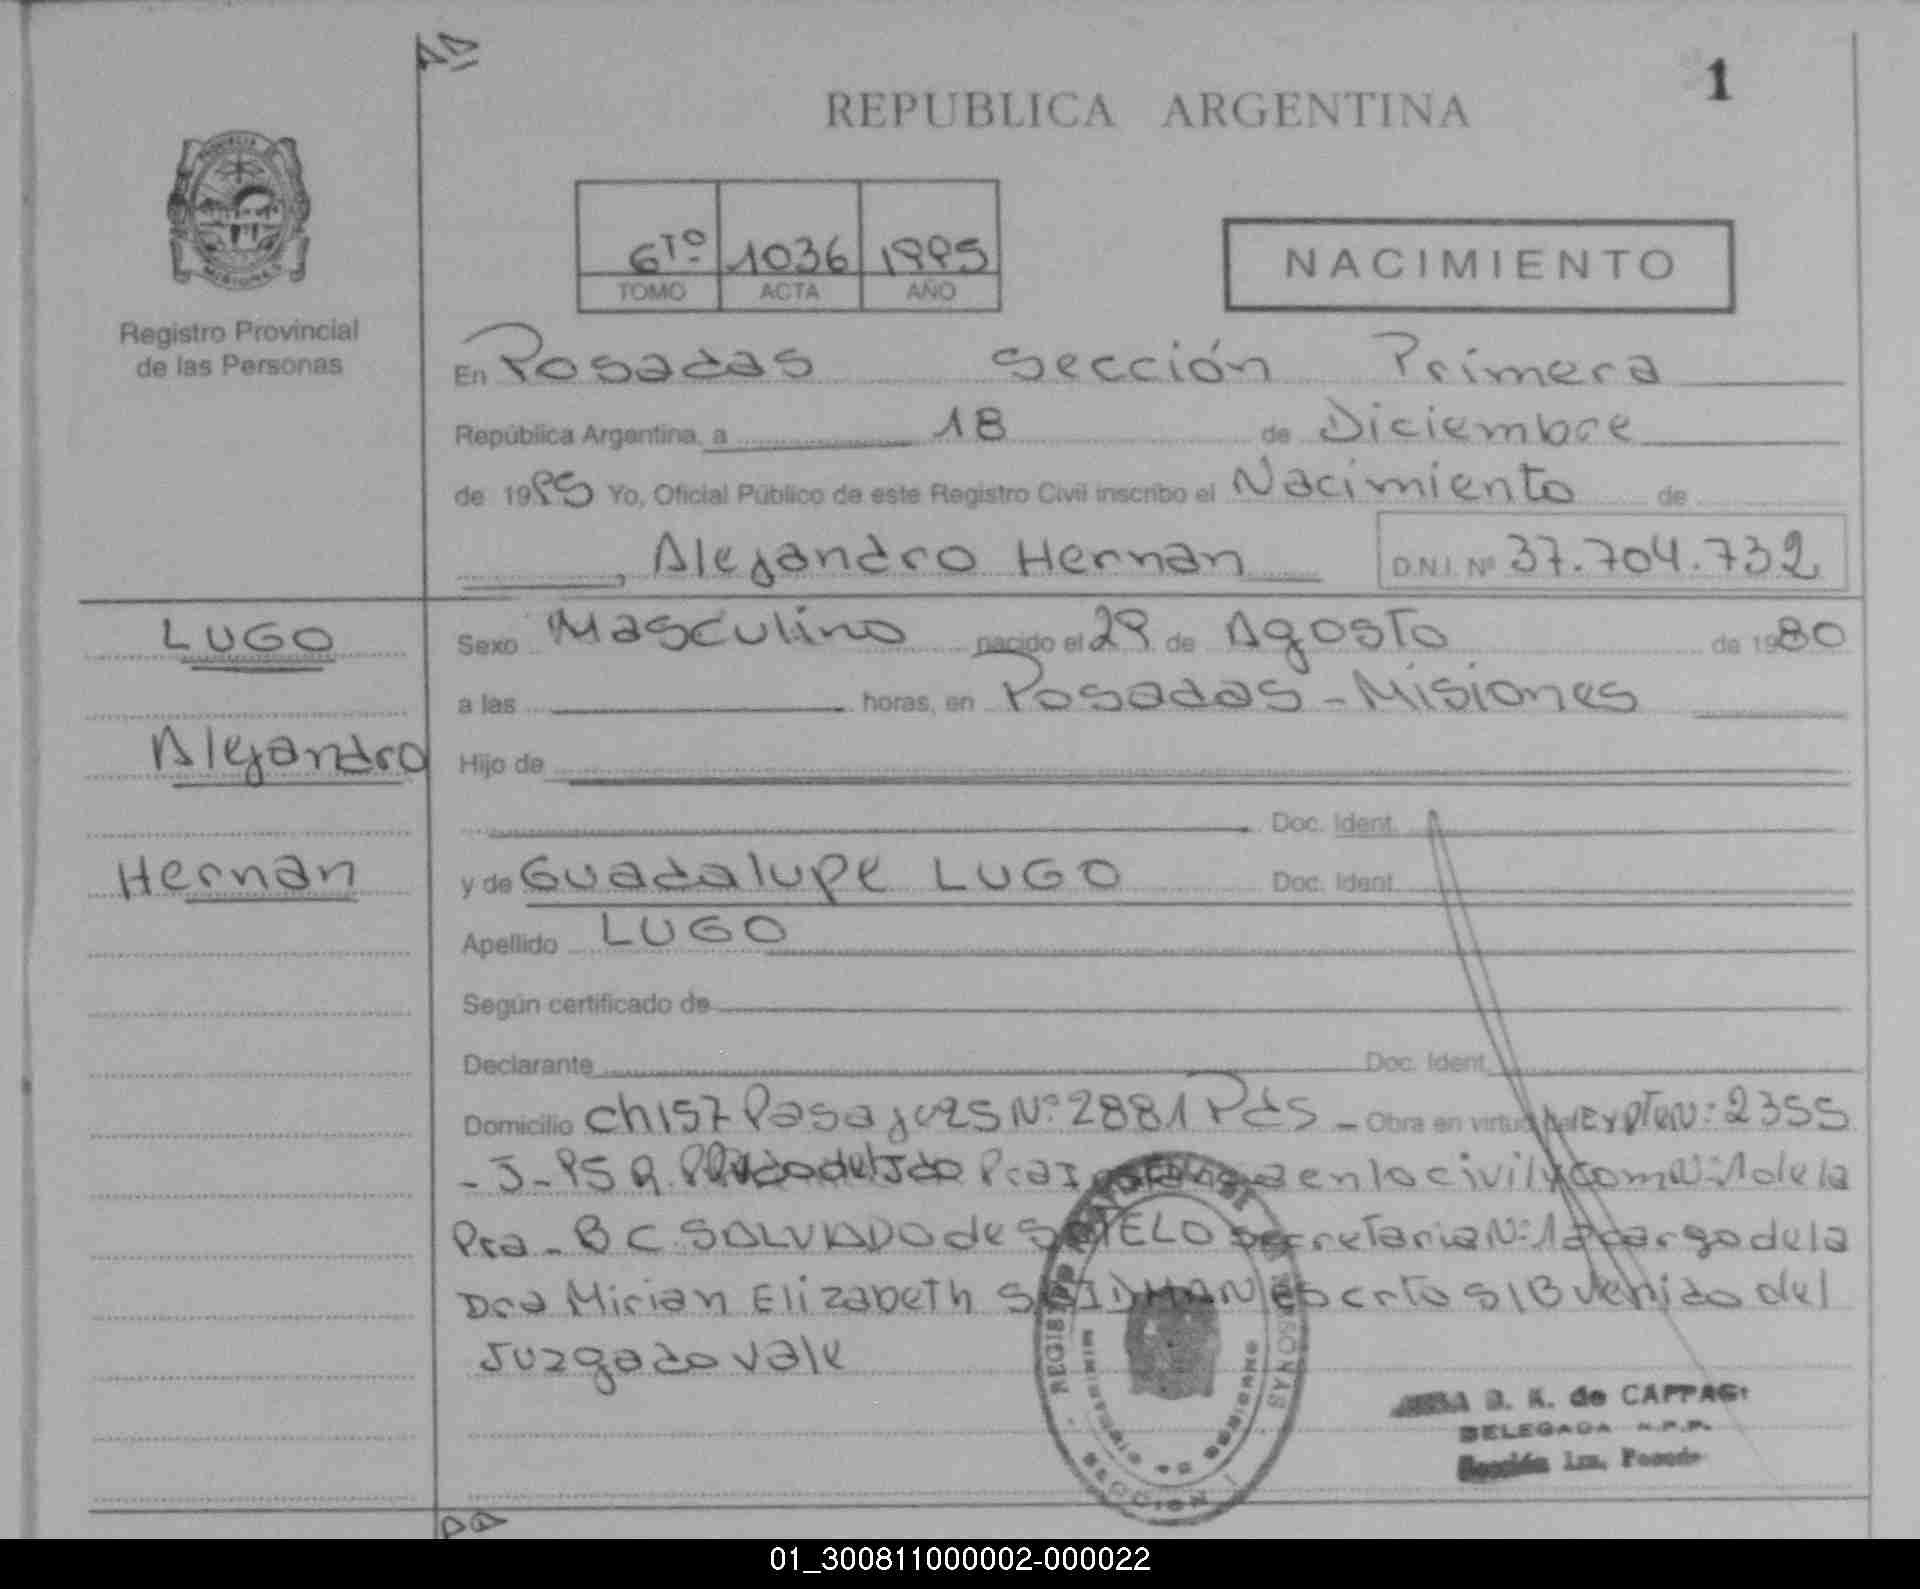 1
REPUBLICA ARGENTINA
PROVINCIA
MISIONES
Registro Provincial
de las Personas
6TO 1036 1995
TOMO ACTA AÑO
NACIMIENTO
En Posadas Sección Primera
República Argentina, a 18 de Diciembre
de 1995 Yo, Oficial Público de este Registro Civil inscribo el Nacimiento de
, Alejandro Hernan D.N.I. Nº 37.704.732
LUGO
Alejandro
Hernan
Sexo Masculino nacido el 29 de Agosto de 1980
a las horas, en Posadas - Misiones
Hijo de
Doc. Ident.
y de Guadalupe LUGO Doc. Ident.
Apellido LUGO
Según certificado de
Declarante Doc. Ident.
Domicilio ch157 Pasaje 25 Nº 2881 Pds - Obra en virtud del Expte N: 2355
- J - 95 Pra en lo civil y com N:1 de la
Dra - B C SALVADO de SOTELO Secretaria N:1 a cargo de la
Dra Mirian Elizabeth S/B venido del
Juzgado vale
MINISTERIO DE GOBIERNO
SECCION
D. K. de CAPPAG
DELEGADA R.P.P.
Sección 1ra. Posadas
01_300811000002-000022